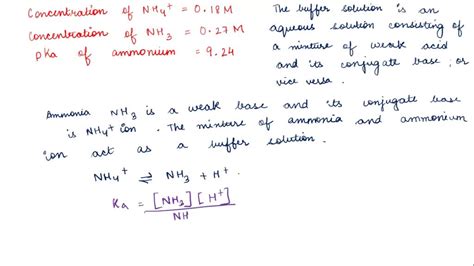 Concentration of NH₄⁺ = 0.18 M
Concentration of NH₃ = 0.27 M
pKa of ammonium = 9.24
The buffer solution is an
aqueous solution consisting of
a mixture of weak acid
and its conjugate base, or
vice versa.
Ammonia NH₃ is a weak base and its conjugate base
is NH₄⁺ ion. The mixture of ammonia and ammonium
ion act as a buffer solution.
NH₄⁺ ⇌ NH₃ + H⁺.
Ka = [NH₃][H⁺]
NH